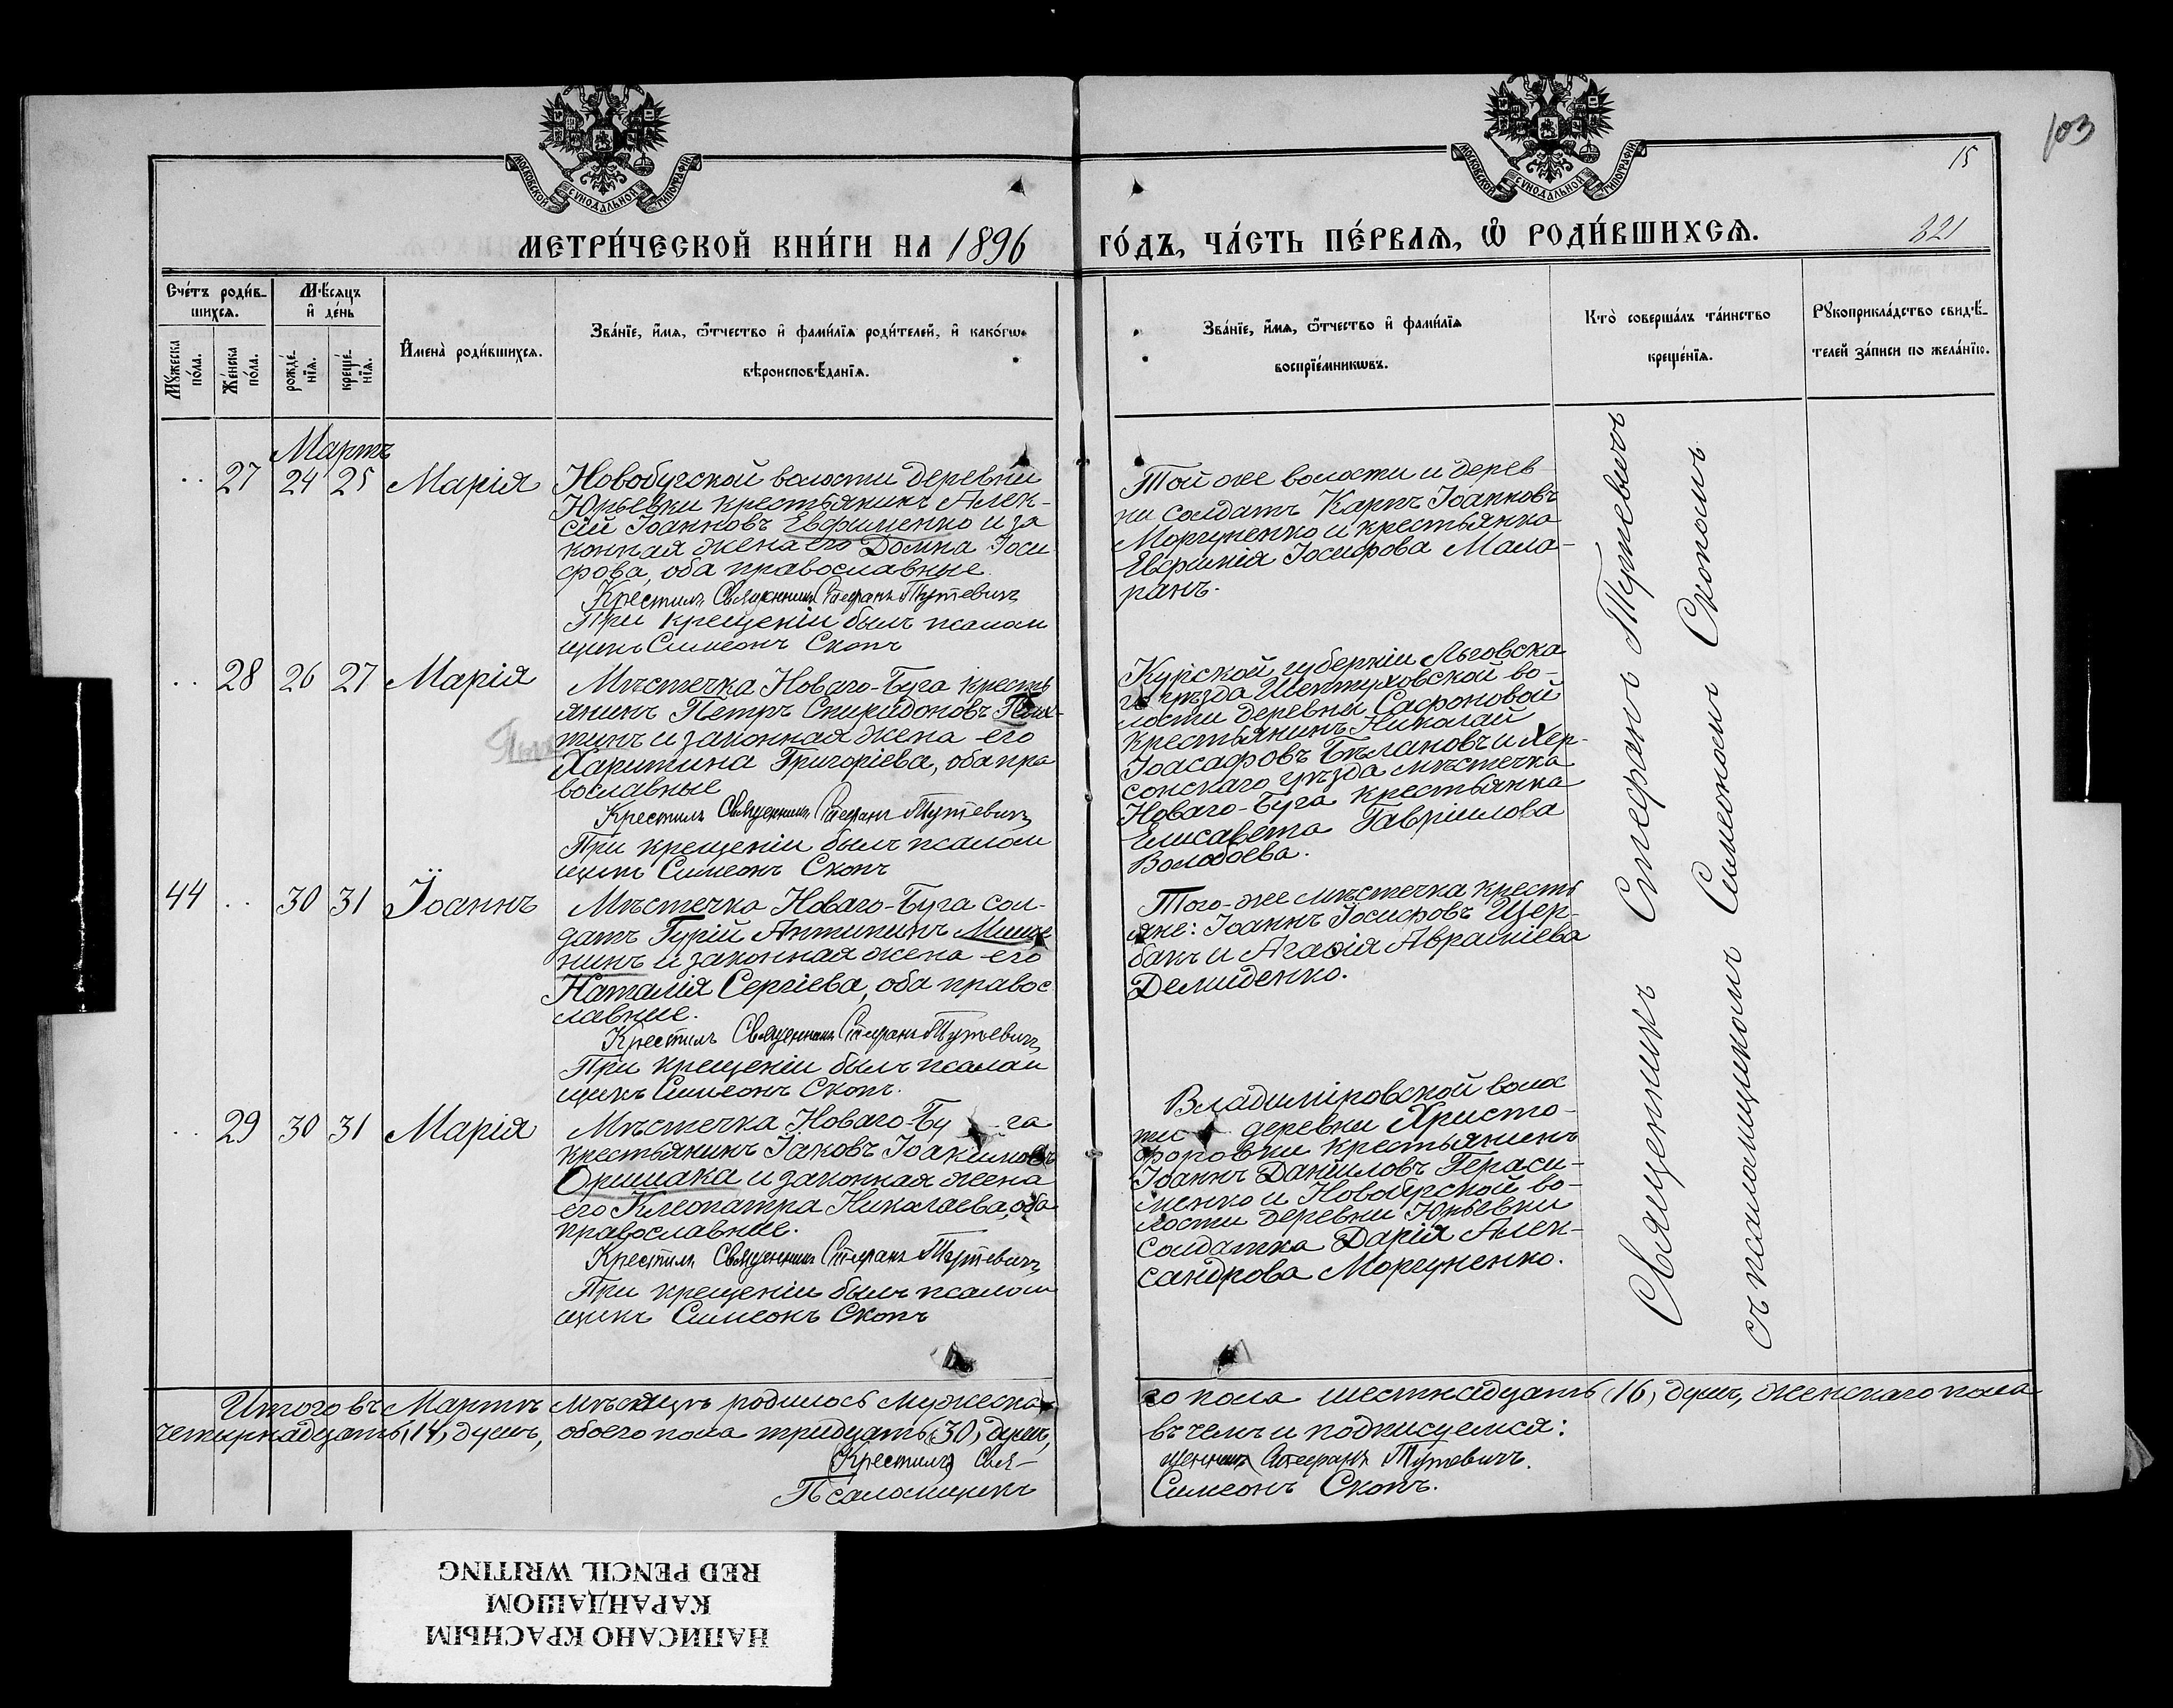 103
15
321
МОСКОВСКОЙ СѴНОДАЛЬНОЙ ТИПОГРАФІИ
МОСКОВСКОЙ СѴНОДАЛЬНОЙ ТИПОГРАФІИ
МЕТРИ́ЧЕСКОЙ КНИ́ГИ НА 1896
ГО́ДЪ, ЧА́СТЬ ПЕ́РВАѦ, Ѡ РОДИ́ВШИХСѦ.
Сче́тъ роди́в-
шихсѧ.
Мѣ́сяцъ
и҆ де́нь
Мꙋ́жеска
по́ла.
Же́нска
по́ла.
рожде́-
нїѧ.
креще́-
нїѧ.
И҆мена̀ роди́вшихсѧ.
Зва́нїе, и҆́мѧ, ѻ҆́тчество и҆ фами́лїѧ роди́телей, и҆ како́гѡ
вѣроисповѣ́данїѧ.
Зва́нїе, и҆́мѧ, ѻ҆́тчество и҆ фами́лїѧ
воспрїе́мникѡвъ.
Кто̀ соверша́лъ та́инство
креще́нїѧ.
Рꙋкоприкла́дство свидѣ́-
телей за́писи по жела́нїю.
Мартъ
.. 27 24 25 Марія
Новобугской волости деревни
Юрьевки крестьянинъ Алек-
сій Іоанновъ Евфименко и за
конная жена его Домна Іоси
фова, оба православные.
Крестилъ Священникъ Стефанъ Тутевичъ
При крещеніи былъ псалом
щикъ Симеонъ Скопъ
Той же волости и дерев
ни солдатъ Карпъ Іоанновъ
Моргуненко и крестьянка
Евфимія Іосифова Мала-
ранъ.
.. 28 26 27 Марія
Мѣстечка Новаго-Буга кресть
янинъ Петръ Спиридоновъ
тинъ и законная жена его
Харитина Григоріева, оба пра
вославные
Крестилъ Священникъ Стефанъ Тутевичъ
При крещеніи былъ псалом
щикъ Симеонъ Скопъ
Курской губерніи Льговска
го уѣзда Шептуховской во-
лости деревни Сафоновой
крестьянинъ Николай
Іоасафовъ Бѣлановъ и Хер-
сонскаго уѣзда мѣстечка
Новаго-Буга крестьянка
Елисавета Гавріилова
Волобоева.
44 .. 30 31 Іоаннъ
Мѣстечка Новаго-Буга сол-
датъ Гурій Антипинъ Мише
нинъ и законная жена его
Наталія Сергіева, оба правос
лавные.
Крестилъ Священникъ Стефанъ Тутевичъ
При крещеніи былъ псалом
щикъ Симеонъ Скопъ.
Того-же мѣстечка кресть
яне: Іоаннъ Іосифовъ Щер-
бакъ и Агафія Авраміева
Демиденко.
.. 29 30 31 Марія
Мѣстечка Новаго-Бу га
крестьянинъ Іаковъ Іоакимовъ
Оришака и законная жена
его Клеопатра Николаева, оба
православные.
Крестилъ Священникъ Стефанъ Тутевичъ
При крещеніи былъ псалом
щикъ Симеонъ Скопъ
Владиміровской волос
ти деревни Христо-
форовки крестьянинъ
Іоаннъ Даніиловъ Гераси-
менко и Новобугской во-
лости деревни Юрьевки
солдатка Дарія Алек-
сандрова Моргуненко.
Священникъ Стефанъ Тутевичъ
съ псаломщикомъ Симеономъ Скопомъ
Итого въ Мартѣ мѣсяцѣ родилось мужеска
го пола шестнадцать (16) душъ, женскаго пола
четырнадцать (14) душъ, обоего пола тридцать (30) душъ,
въ чемъ и подписуемся:
Крестилъ Свя-
щенникъ Стефанъ Тутевичъ.
Псаломщикъ
Симеонъ Скопъ.
НАПИСАНО КРАСНЫМ
КАРАНДАШОМ
RED PENCIL WRITING